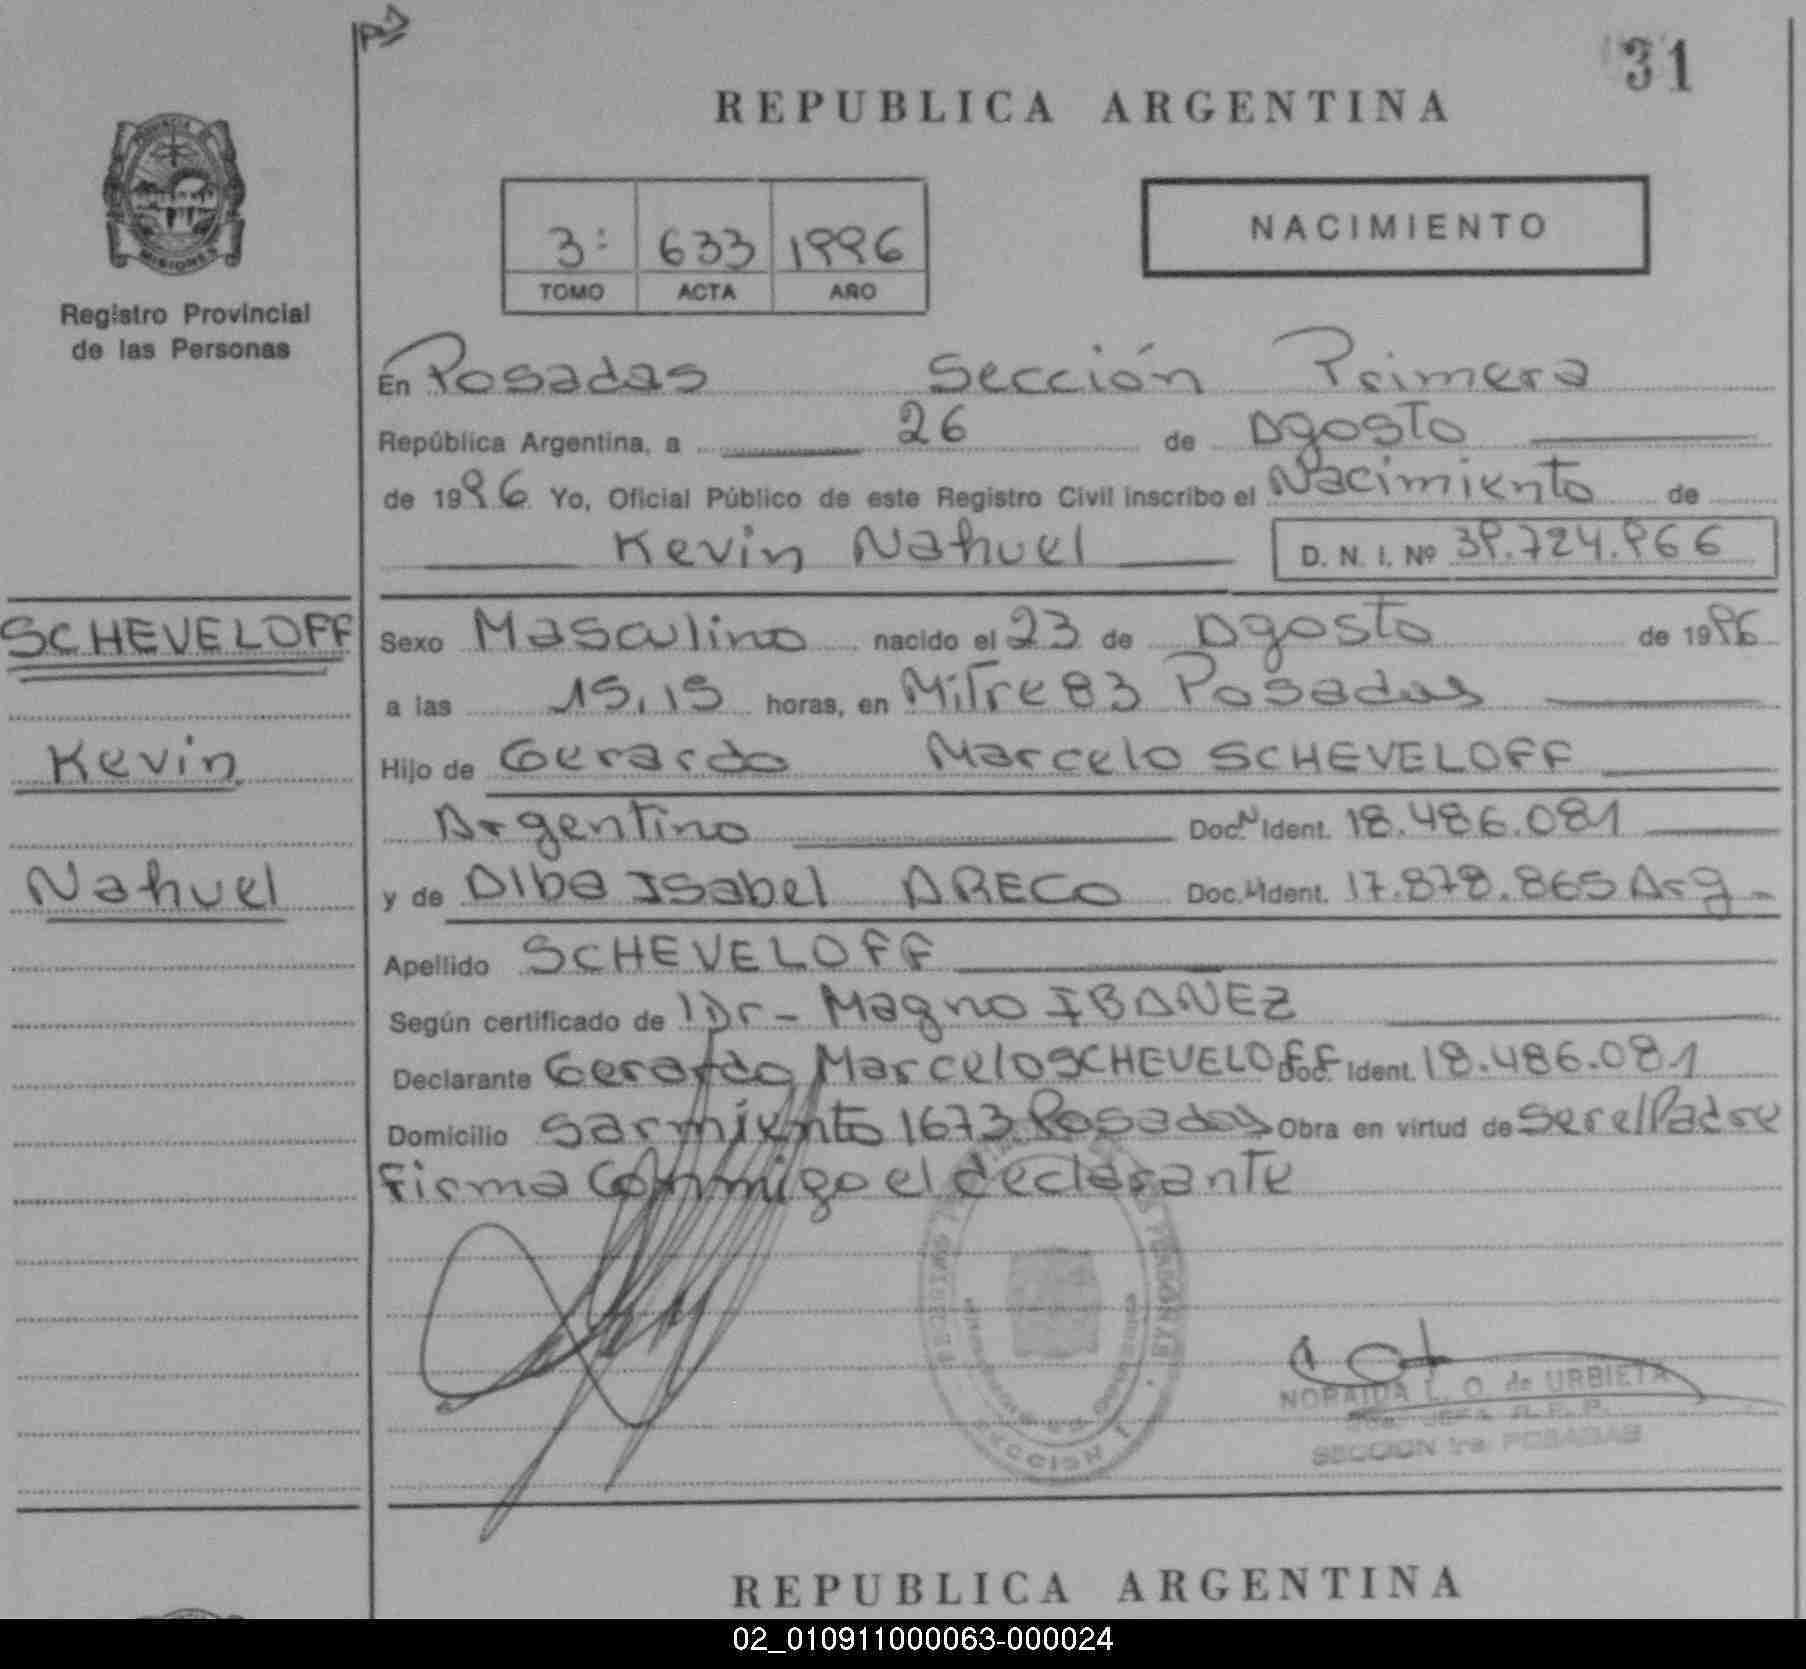 31
REPUBLICA ARGENTINA
PROVINCIA
MISIONES
Registro Provincial
de las Personas
3: 633 1996
TOMO ACTA AÑO
NACIMIENTO
En Posadas Sección Primera
República Argentina, a 26 de Agosto
de 1996 Yo, Oficial Público de este Registro Civil inscribo el Nacimiento de
Kevin Nahuel D. N. I. Nº 39.724.966
SCHEVELOFF
Kevin
Nahuel
Sexo Masculino nacido el 23 de Agosto de 1996
a las 15,15 horas, en Mitre 83 Posadas
Hijo de Gerardo Marcelo SCHEVELOFF
Argentino Doc.N Ident. 18.486.081
y de Alba Isabel ARECO Doc.N Ident. 17.878.865 Arg.-
Apellido SCHEVELOFF
Según certificado de Dr- Magno IBANEZ
Declarante Gerardo Marcelo SCHEVELOFF Doc. Ident. 18.486.081
Domicilio Sarmiento 1673 Posadas Obra en virtud de Ser el Padre
Firma Conmigo el declarante
SECCION 1
NORAIDA L. O. de URBIETA
JEFA R. P. P.
SECCION 1ra. POSADAS
REPUBLICA ARGENTINA
02_010911000063-000024